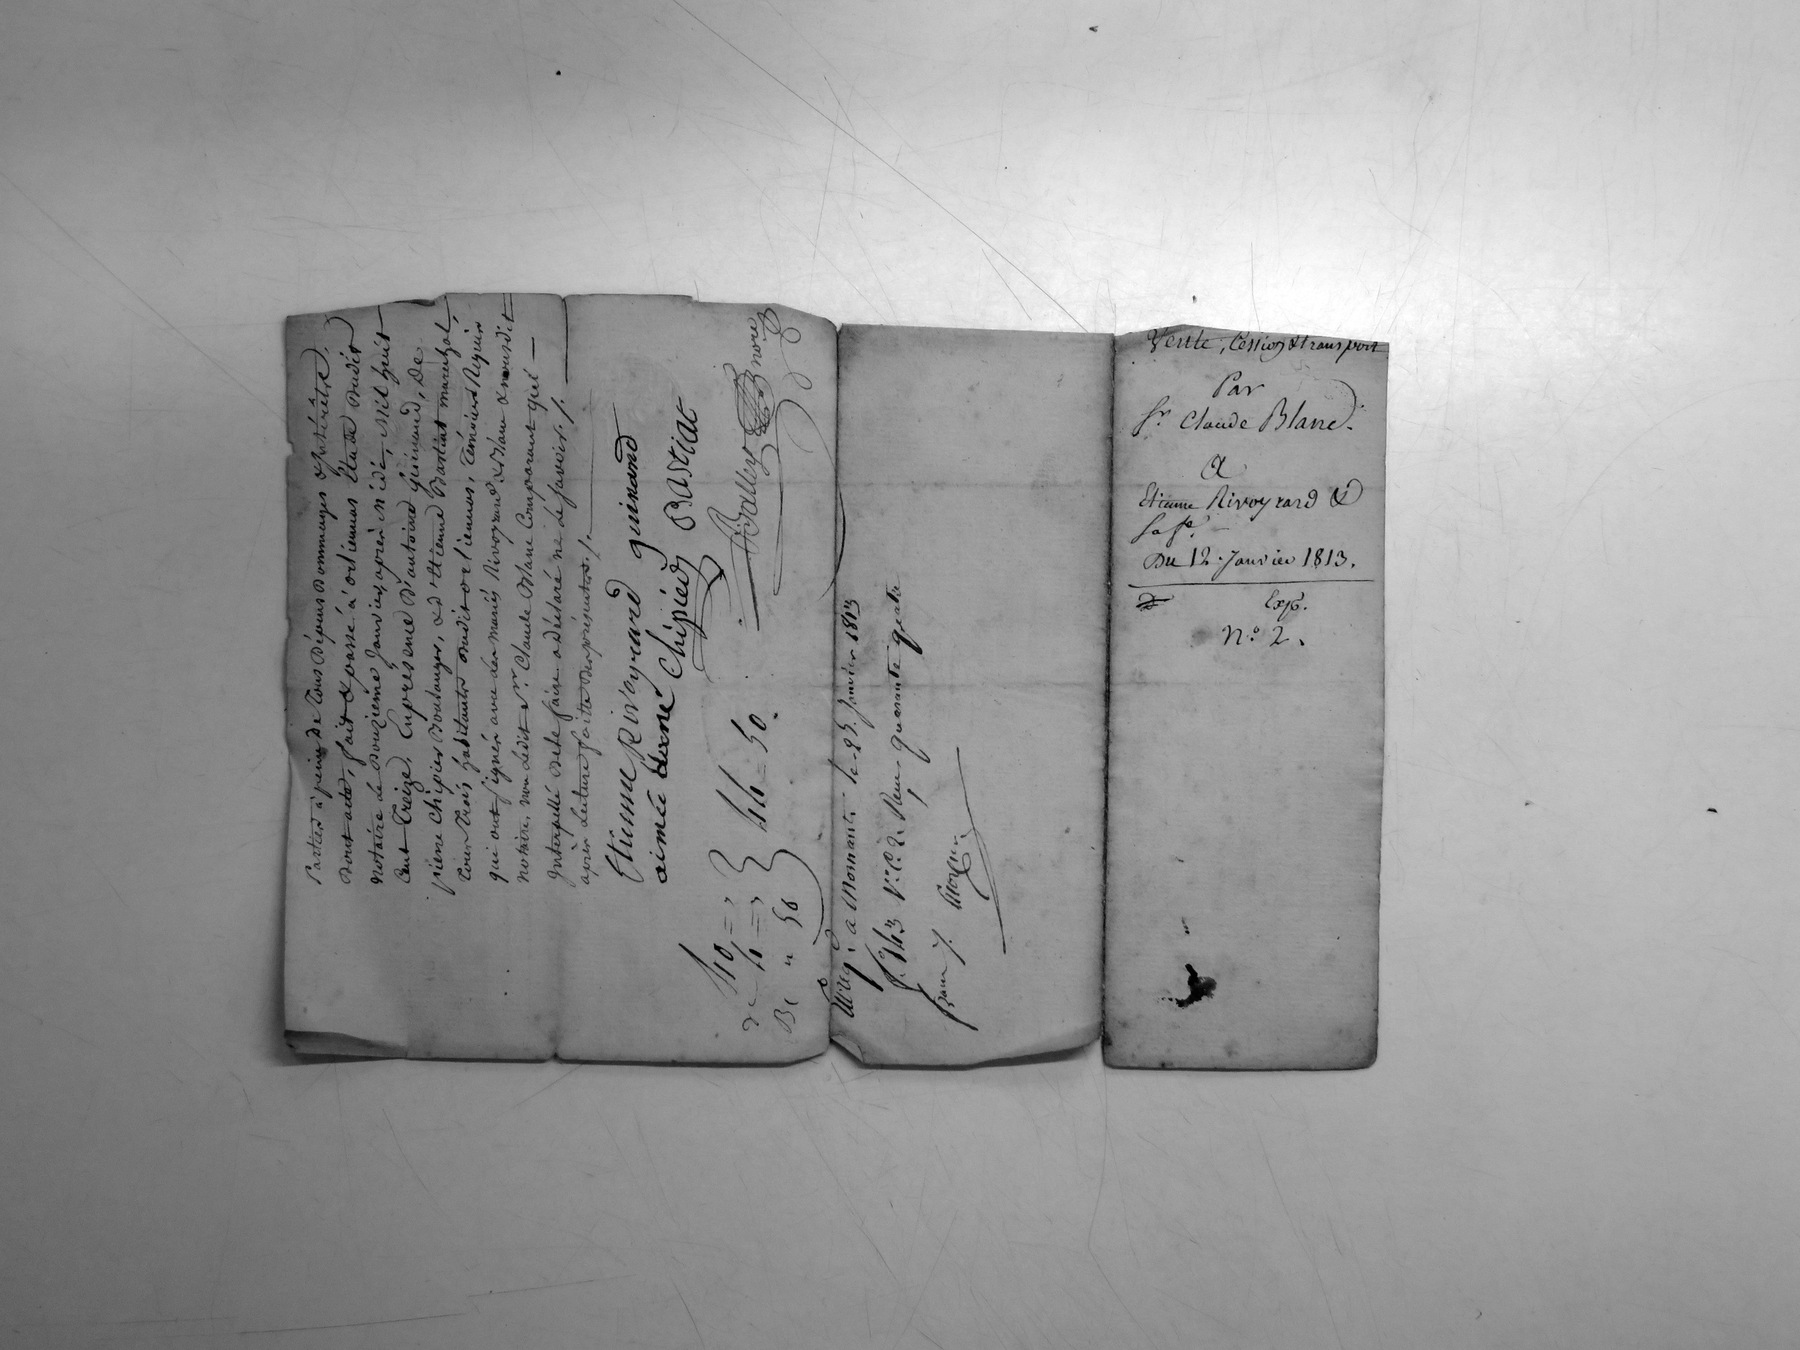 Parties à peine de tous dépens dommages & intérêts.
Dont acte, fait & passé à Orliennas Étude dudit
notaire le douzième janvier après midi, Mil huit
Cent treize, En présence d'antoine guinand, De
pierre Chipier Boulanger, et d'Etienne Bastiat marechal,
tous trois habitants dudit orliennas, témoins Requis
qui ont signés avec les mariés Rivoyrard & Blanc & nousdit
notaire, non ledit Sr. Claude Blanc Comparant qui
Interpellé de le faire a déclaré ne le savoir /.
après lecture faite des présentes /.
Etienne Rivoyrard guinand
aimée Chipier BASTIAT
Balley nore
de 40 = ,
4 = , } 44 = 50.
Be " 50
Enreg. à Mornant le 25 Janvier 1813
f.º 143 v.º C.e 2. Reçu quarante quatre
francs
Vente, Cession & transport
Par
Sr. Claude Blanc.
A
Etienne Rivoyrard &
sa fe.
Du 12. Janvier 1813.
Exp.
N.º 2.